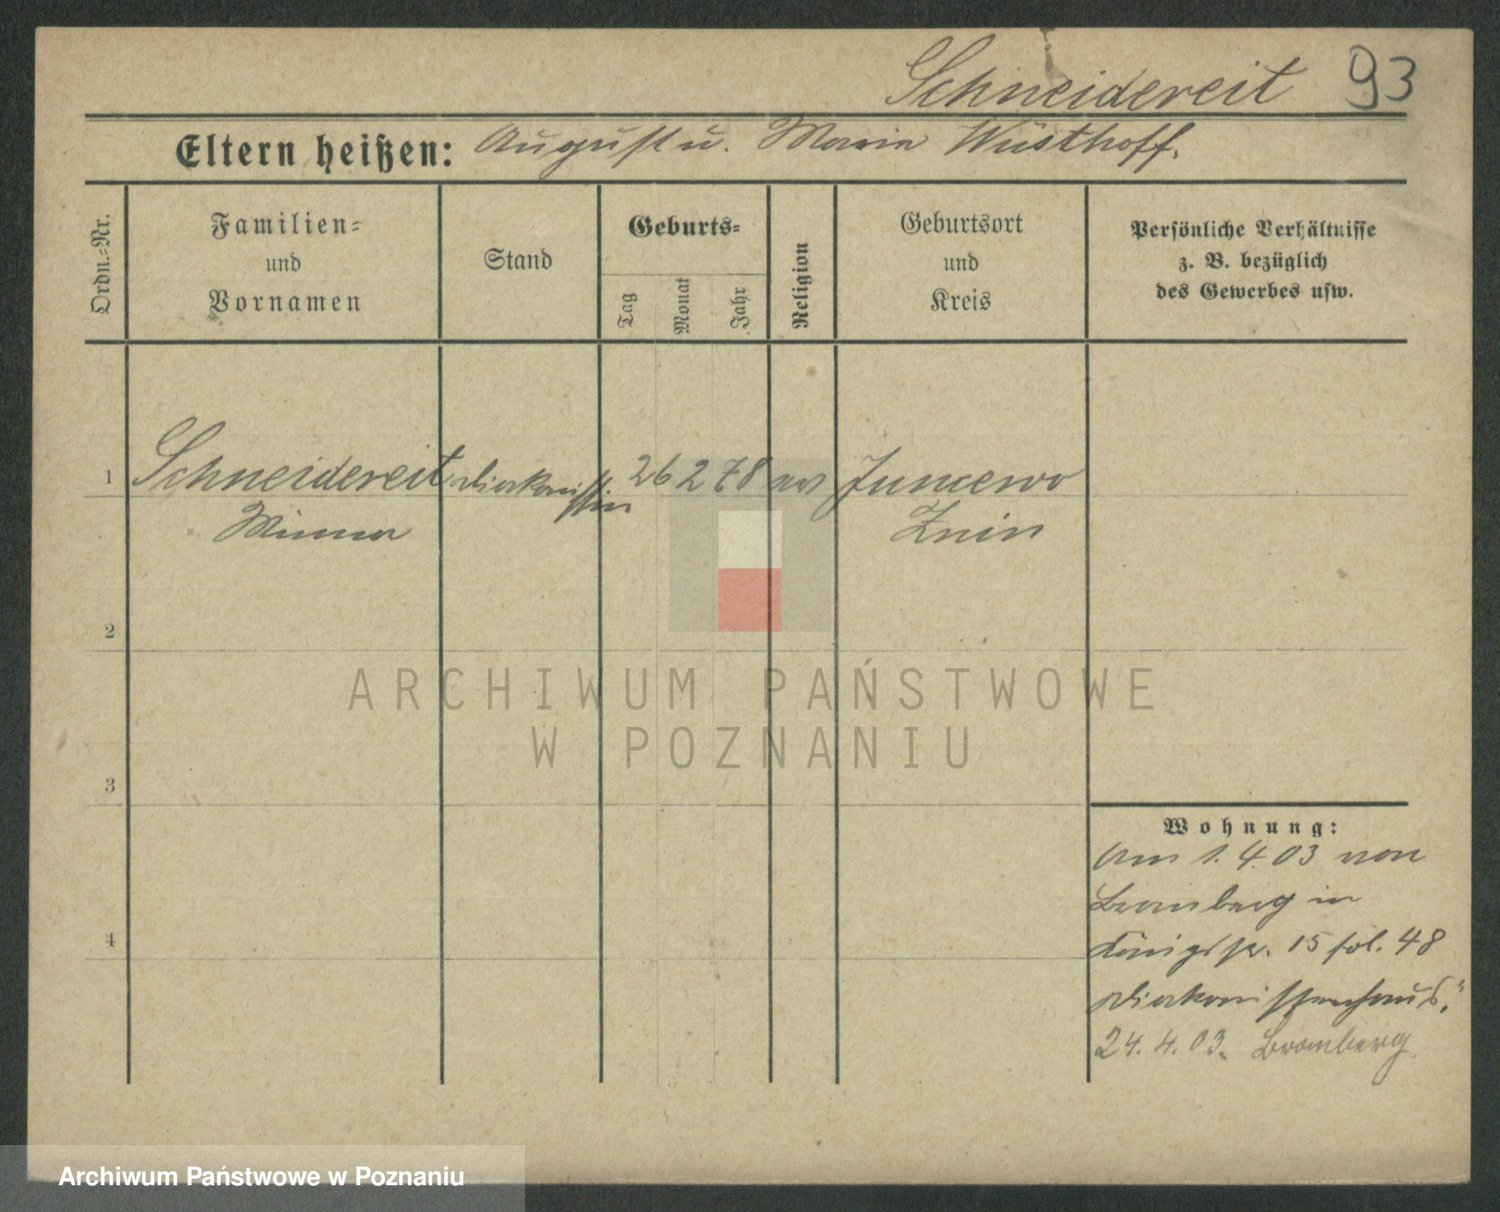 Schneidereit 93
Eltern heißen: August u. Maria Wüsthoff.
Ordn.-Nr.
Familien-
und
Vornamen
Stand
Geburts-
Tag
Monat
Jahr
Religion
Geburtsort
und
Kreis
Persönliche Verhältnisse
z. B. bezüglich
des Gewerbes usw.
1 Schneidereit Diakonissin 26 2 78 ev Juncewo
Minna Znin
2
ARCHIWUM PAŃSTWOWE
W POZNANIU
3
4
Wohnung:
Am 1. 4. 03 von
Bromberg in
Königstr. 15 fol. 48
Diakonissenhaus."
24. 4. 03. Bromberg
Archiwum Państwowe w Poznaniu